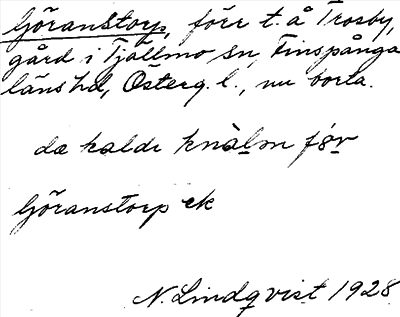 Göranstorp, förr t. å Trosby,
gård i Tjällmo sn, Finspånga
läns hd, Österg. l., nu borta.
da kalde knälm før
Göranstorp ek
N. Lindqvist 1928